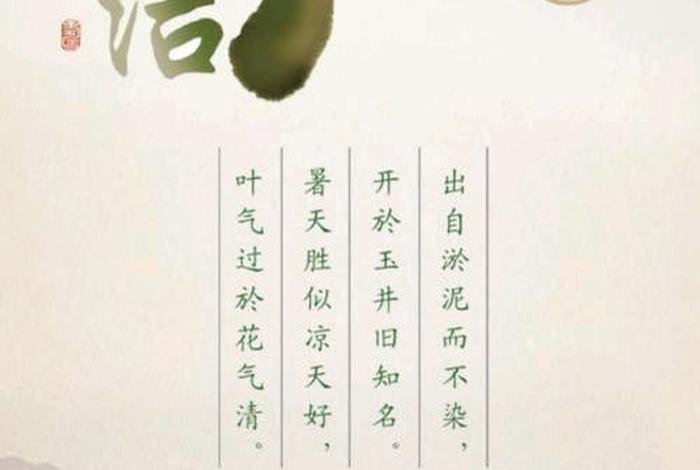 洁
出自淤泥而不染，
开於玉井旧知名。
暑天胜似凉天好，
叶气过於花气清。